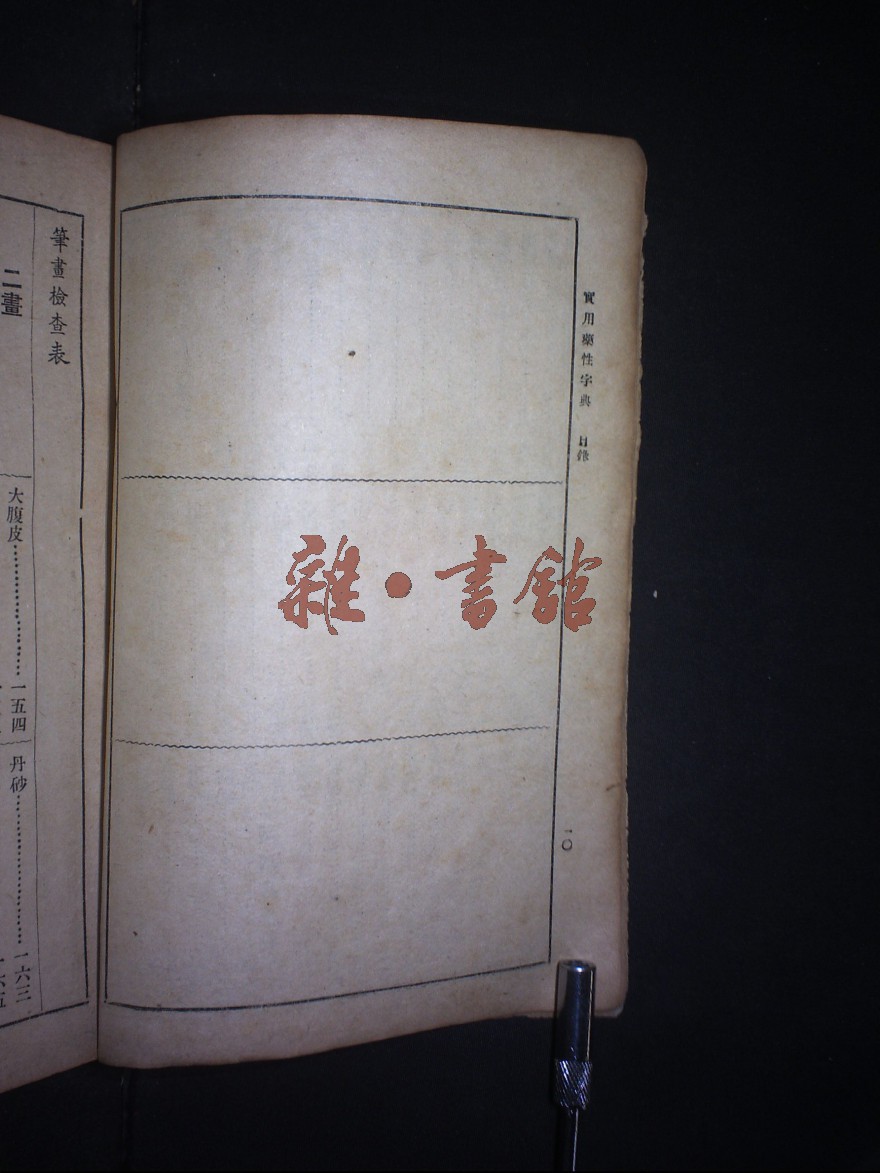 實用藥性字典 目錄
一〇
雜·書館
筆畫檢查表
二畫
大腹皮……一五四
丹砂……一六三